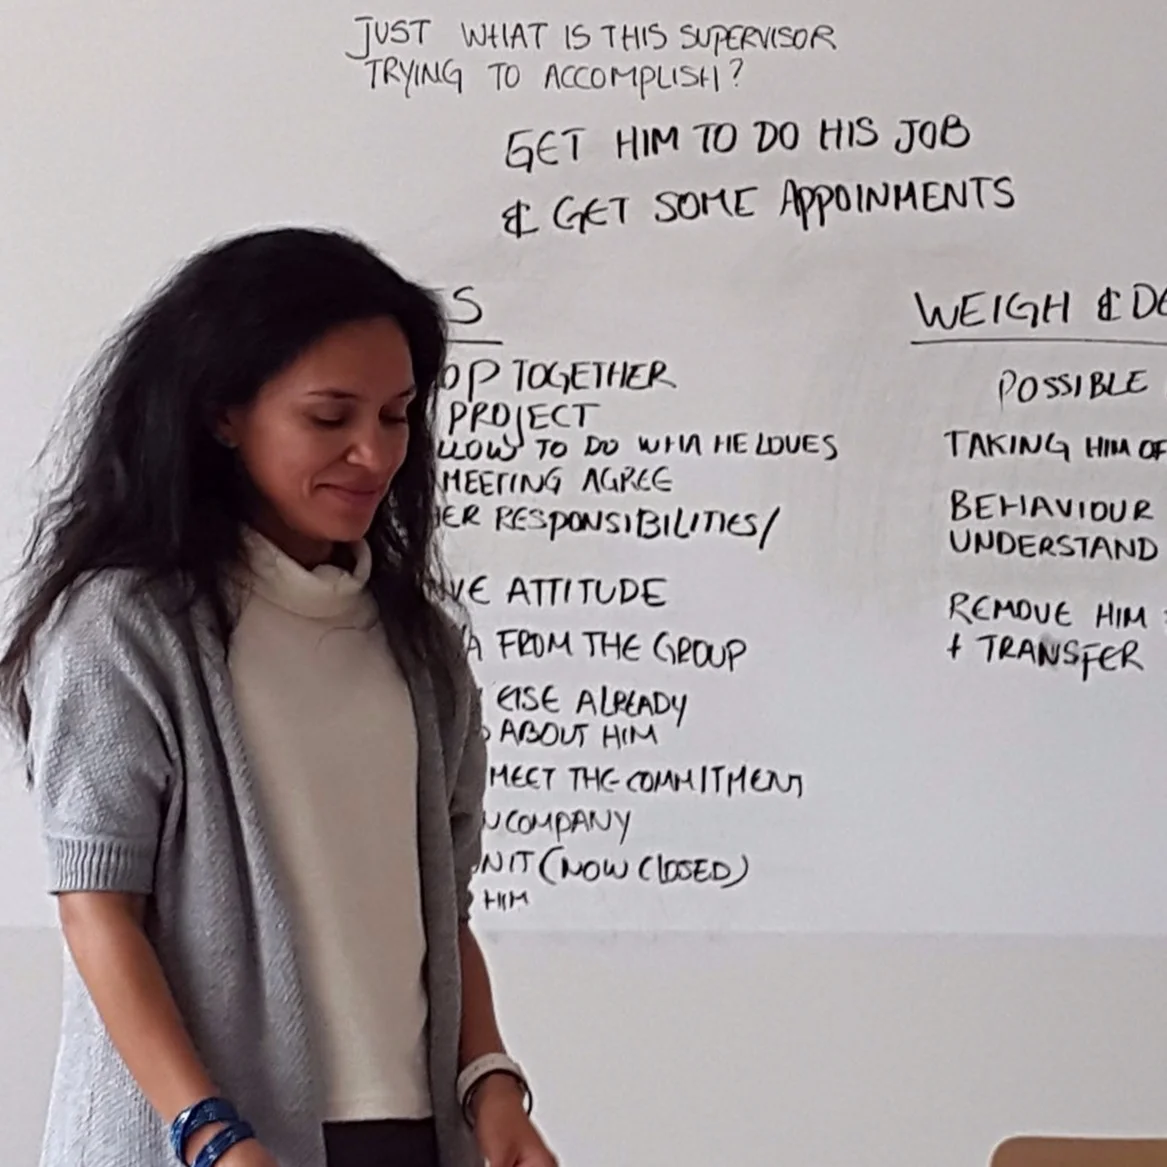 JUST WHAT IS THIS SUPERVISOR
TRYING TO ACCOMPLISH?
GET HIM TO DO HIS JOB
& GET SOME APPOINMENTS
S
OP TOGETHER
PROJECT
LLOW TO DO WHA HE LOVES
MEETING AGREE
ER RESPONSIBILITIES/
VE ATTITUDE
A FROM THE GROUP
ELSE ALREADY
ABOUT HIM
MEET THE COMMITMENT
N COMPANY
NIT (NOW CLOSED)
HIM
WEIGH & DE
POSSIBLE
TAKING HIM OF
BEHAVIOUR
UNDERSTAND
REMOVE HIM
+ TRANSFER